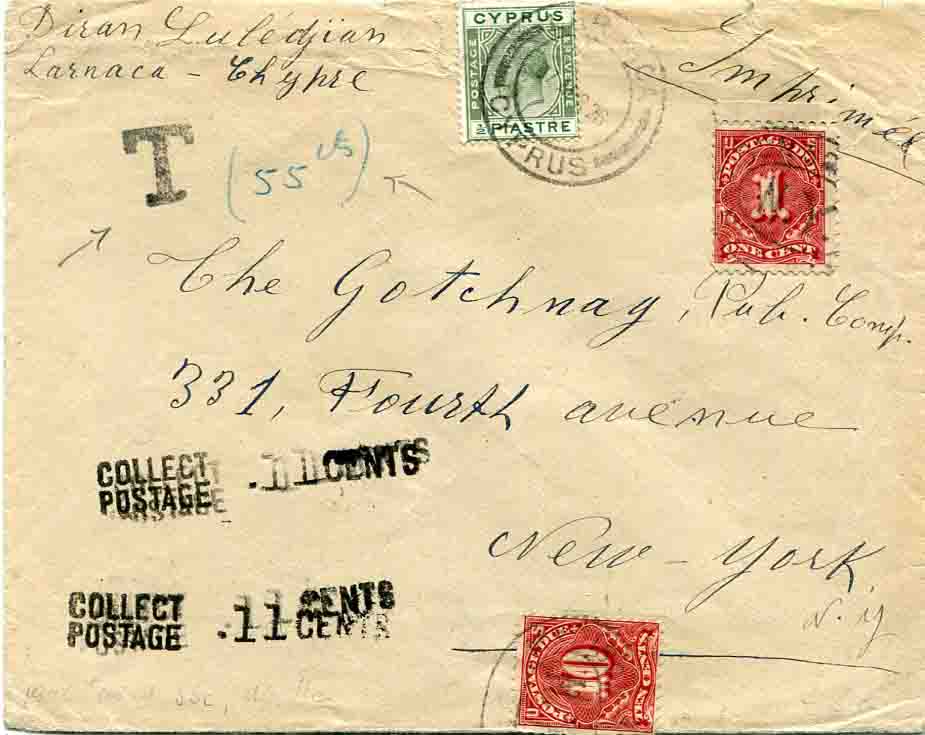 Diran Luledjian
Larnaca - Chypre
CYPRUS
POSTAGE
REVENUE
PIASTRE
CYPRUS
Imprimée
T
(55 cts)
POSTAGE DUE
1
ONE CENT
The Gotchnag, Pub. Comp.
331, Fourth avenue
COLLECT POSTAGE .11 CENTS
New-York
N.Y
COLLECT POSTAGE .11 CENTS
CENTS
POSTAGE DUE
10
TEN CENTS